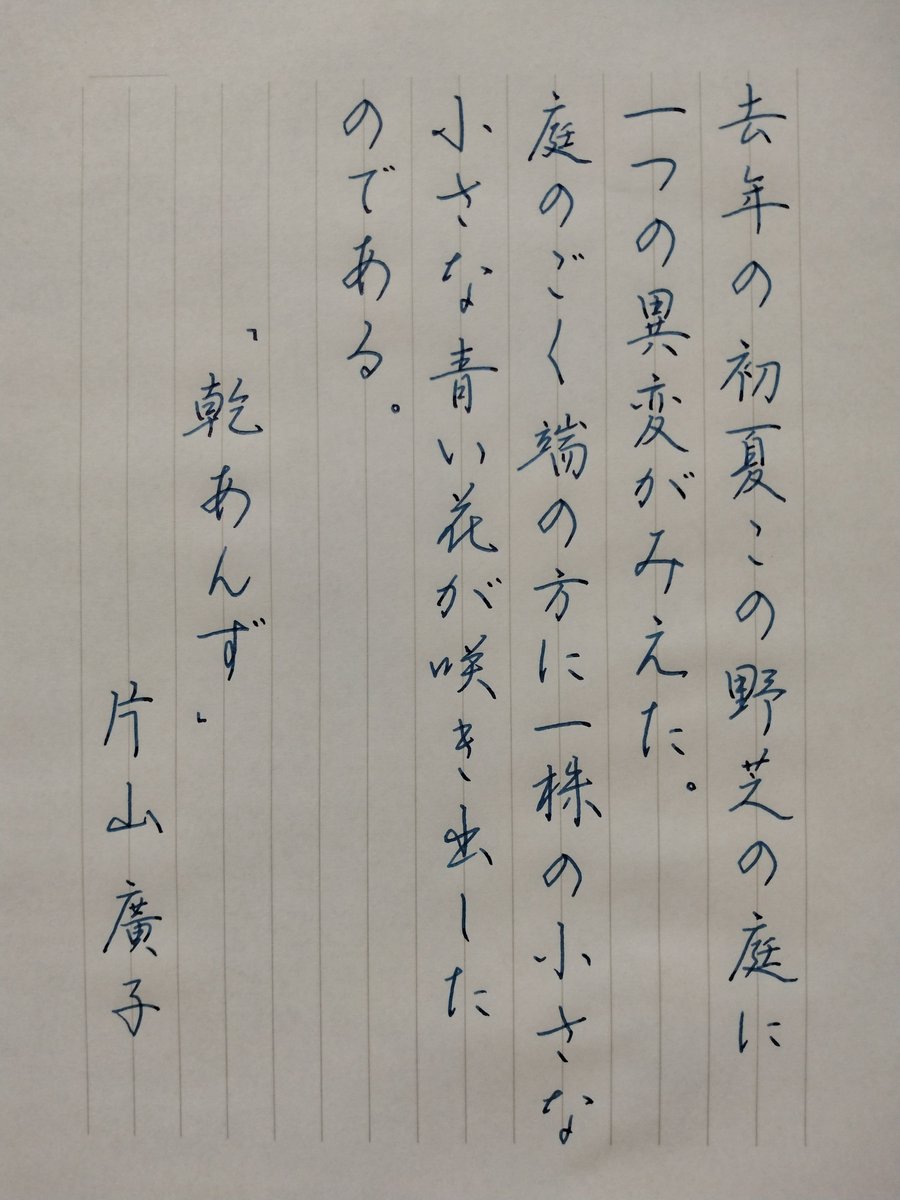 去年の初夏この野芝の庭に
一つの異変がみえた。
庭のごく端の方に一株の小さな
小さな青い花が咲き出した
のである。
「乾あんず」
片山廣子